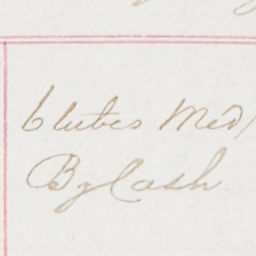 6 tubes Med
By Cash